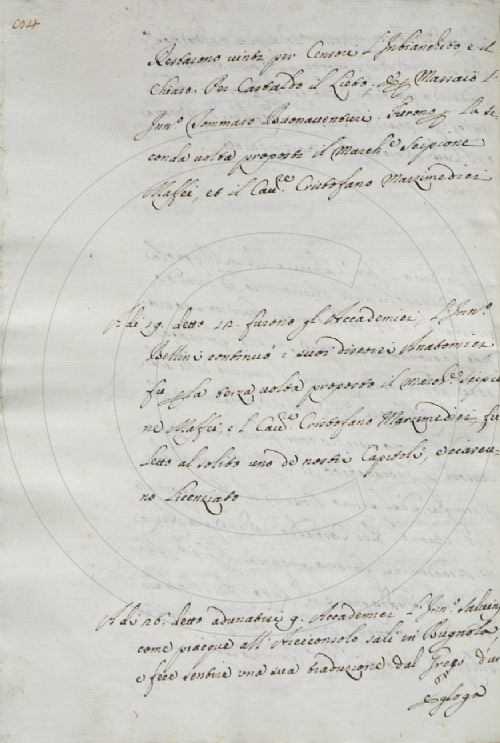 Restarono vinti per Censori l'Imbiandito e il
Chiaro. Per Castaldo il Lieto, e p Massaio l'
Inn.º Tommaso Buonaventuri. Furono p la se-
conda volta proposti il March.e Scipione
Maffei, et il Cav.re Cristofano Marzimedici
A di 19. detto 12. furono gl'Accademici, l'Inn.º
Bellini continuò i suoi discorsi Anatomici
fu p la terza volta proposto il March.e Scipio
ne Maffei, e l Cav.re Cristofano Marzimedici, fu
letto al solito uno de nostri Capitoli, e ciascu-
no Licenziato
A di 26. detto adunatisi g. Accademici l'Inn.º Salvini
come piacque all'Arciconsolo salì in Bugnola
e fece sentire una sua traduzione dal Grego d'un
Egloga